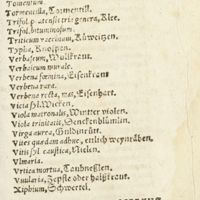 Tomentum.
Tormentilla, Tormentill.
Trifol. pratensis tria genera, Klee.
Trifol. bituminosum.
Triticum vaccinum, Kůweitzen.
Typha, Knospen.
Verbascum, Wullkraut.
Verbascum murale.
Verbena fœmina, Eisenkraut
Verbena rara.
Verbena recta, mas, Eisenhart.
Vicia syl. Wicken,
Viola matronalis, Winter violen.
Viola trinitatis, Denckenblůmlin.
Virga aurea, Guldinrůt.
Vites quædam adhuc, etlich weynräben.
Vitis syl. caustica, Lielen.
Vlmaria.
Vrtica mortua, Taubnesßlen.
Vuularia, Zepffle oder halßkraut.
Xiphium, Schwertel.